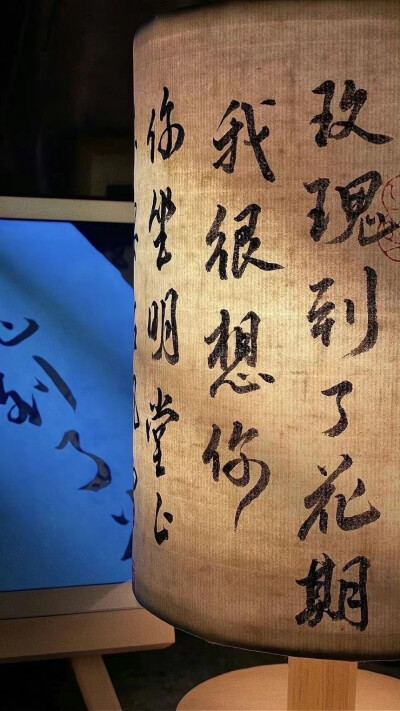 玫瑰到了花期
我很想你
你坐明堂上